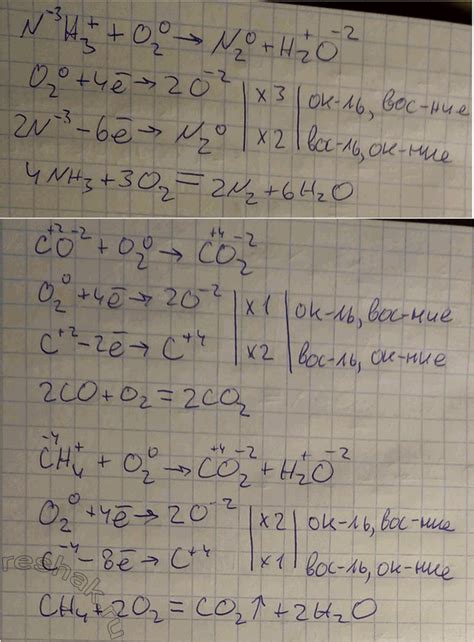 N⁻³H₃⁺ + O₂⁰ → N₂⁰ + H₂⁺O⁻²
O₂⁰ + 4ē → 2O⁻² | x3 | ок-ль, вос-ние
2N⁻³ - 6ē → N₂⁰ | x2 | вос-ль, ок-ние
4NH₃ + 3O₂ = 2N₂ + 6H₂O
C⁺²O⁻² + O₂⁰ → C⁺⁴O₂⁻²
O₂⁰ + 4ē → 2O⁻² | x1 | ок-ль, вос-ние
C⁺² - 2ē → C⁺⁴ | x2 | вос-ль, ок-ние
2CO + O₂ = 2CO₂
C⁻⁴H₄⁺ + O₂⁰ → C⁺⁴O₂⁻² + H₂⁺O⁻²
O₂⁰ + 4ē → 2O⁻² | x2 | ок-ль, вос-ние
C⁻⁴ - 8ē → C⁺⁴ | x1 | вос-ль, ок-ние
CH₄ + 2O₂ = CO₂↑ + 2H₂O
reshak.ru